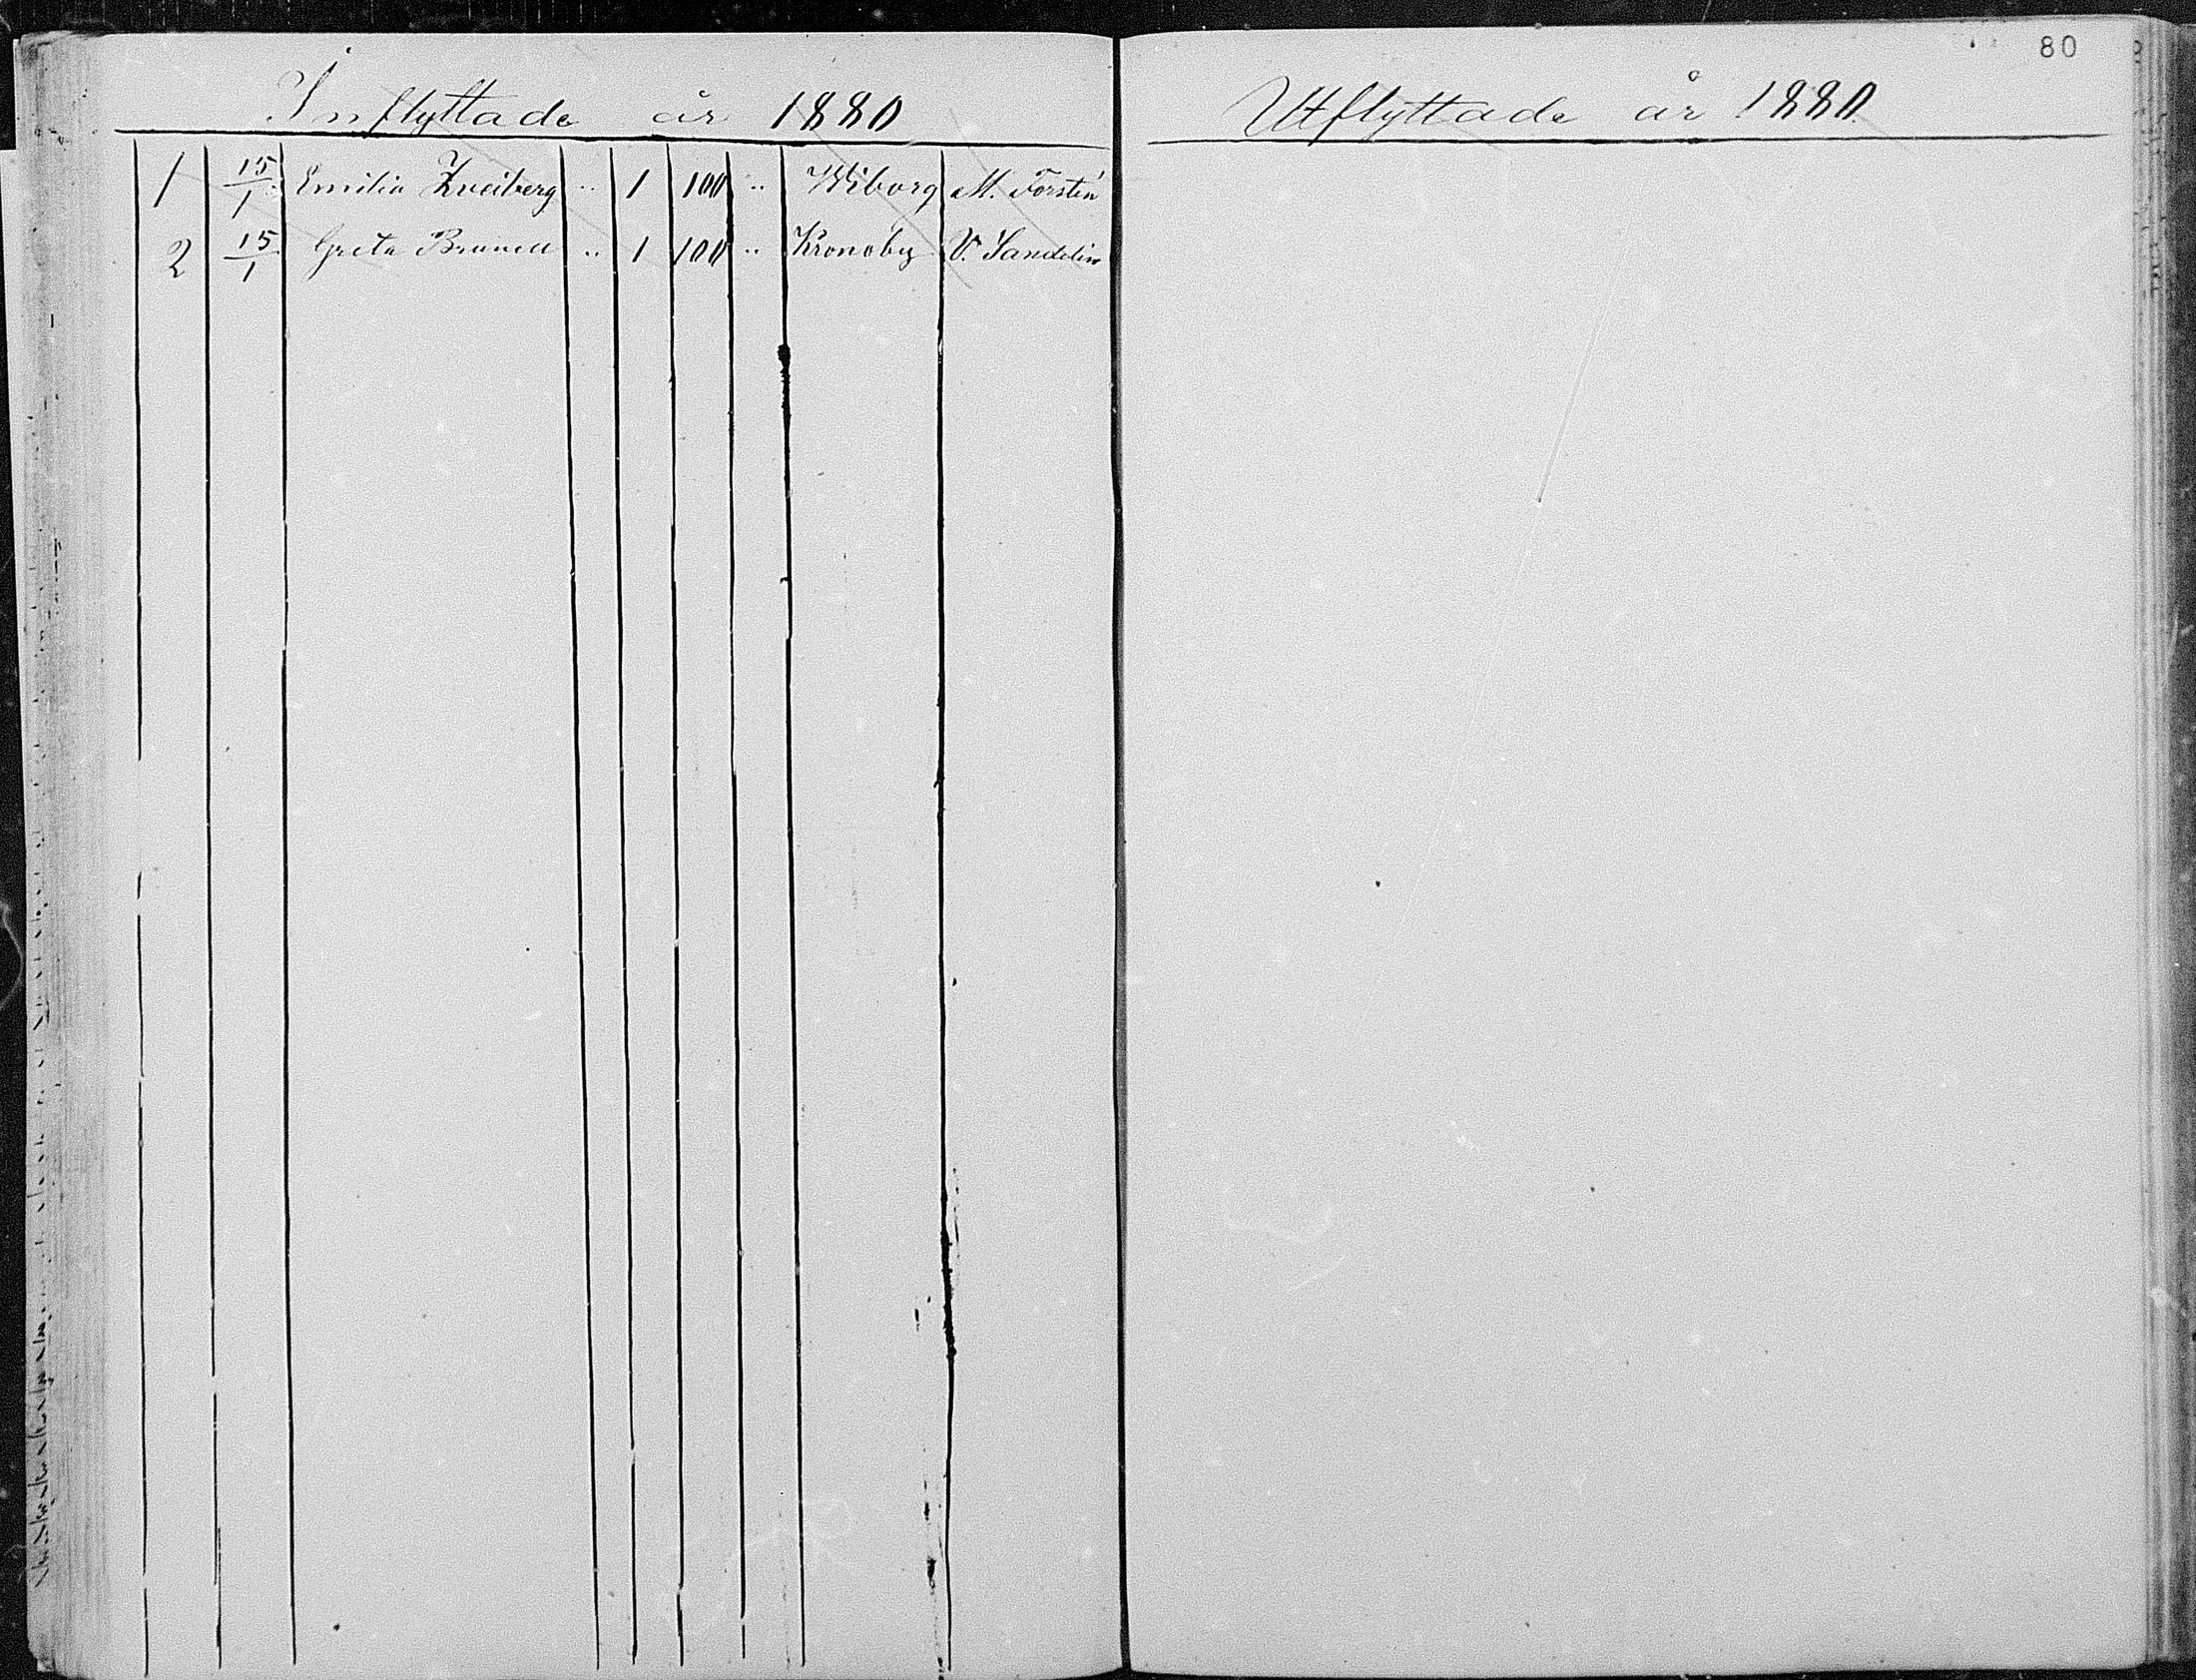 Inflyttade år 1880
1 15/1 Emilia Zweiberg .. 1 100 .. Wiborg M. Forstén
2 15/1 Greta Brunell .. 1 100 .. Kronoby V. Sandelin
80
Utflyttade år 1880